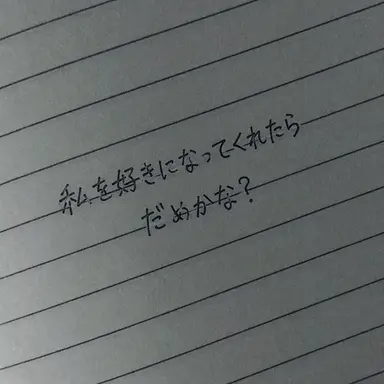 私を好きになってくれたら
だめかな？